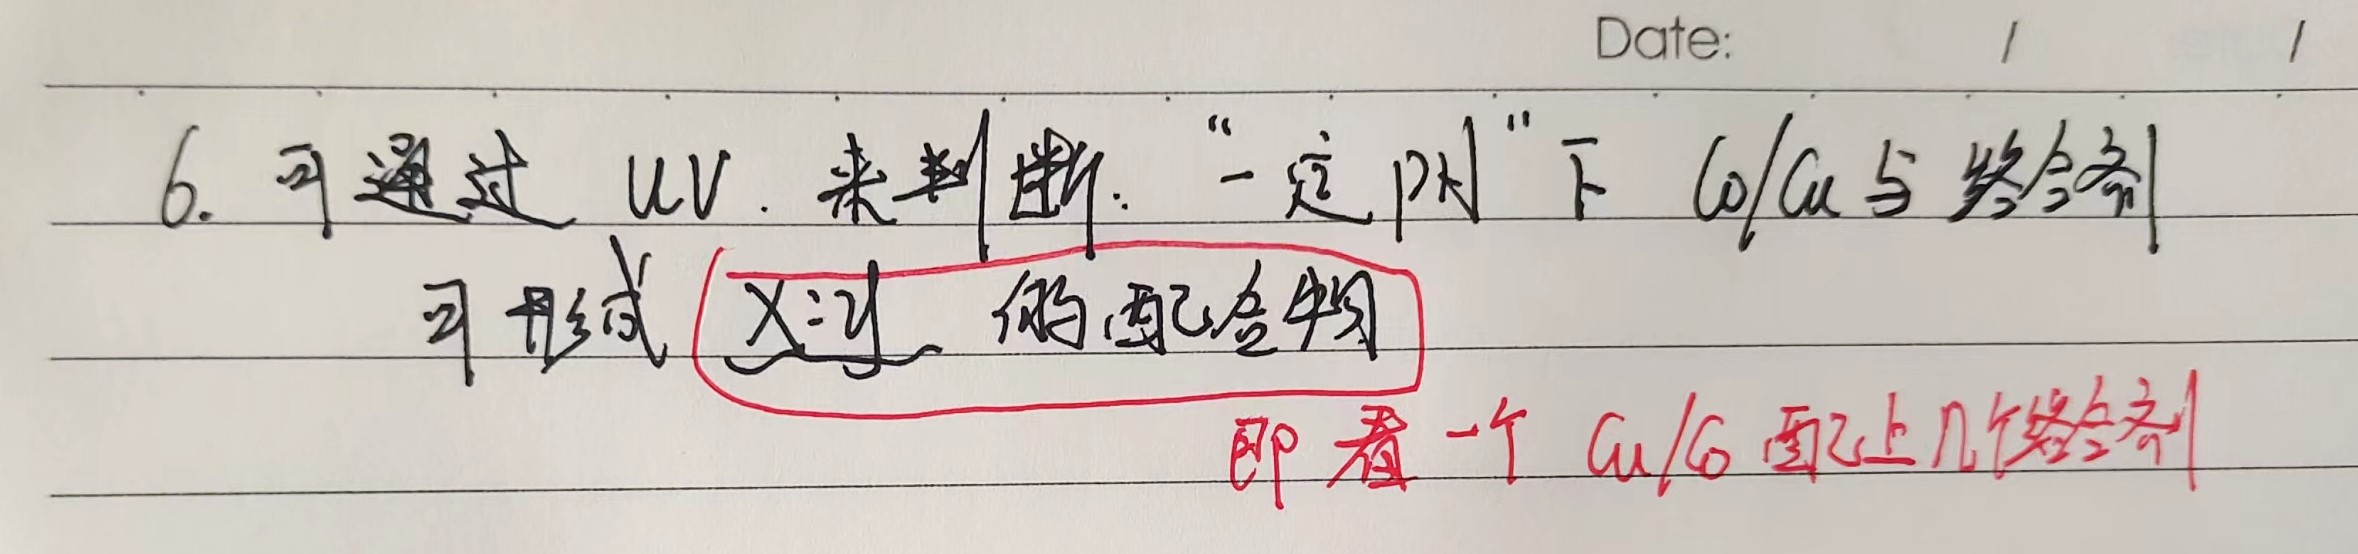 Date: / /
6. 可通过 UV. 来判断. “一定 PH” 下 Co/Cu 与 络合剂
可形成 X:y 的配合物
即看一个 Cu/Co 配上几个络合剂